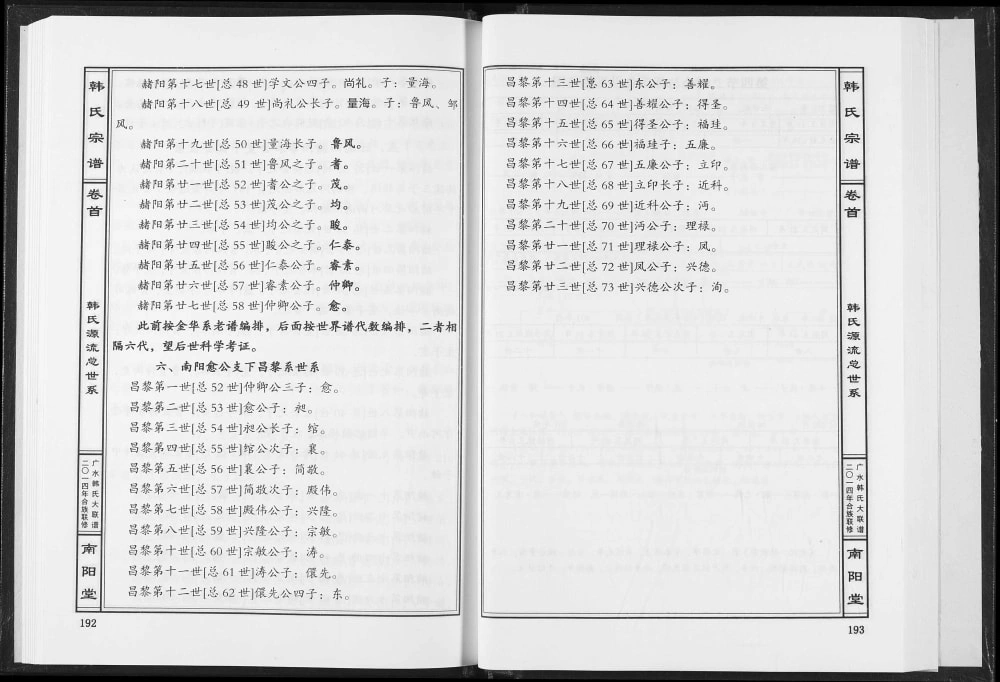 韩氏宗谱
卷首
韩氏源流总世系
广水韩氏大联谱
二〇一四年合族联修
南阳堂
赭阳第十七世[总 48 世]学文公四子。尚礼。子：量海。
赭阳第十八世[总 49 世]尚礼公长子。量海。子：鲁风、邹
风。
赭阳第十九世[总 50 世]量海长子。鲁风。
赭阳第二十世[总 51 世]鲁风之子。者。
赭阳第廿一世[总 52 世]耆公之子。茂。
赭阳第廿二世[总 53 世]茂公之子。均。
赭阳第廿三世[总 54 世]均公之子。晙。
赭阳第廿四世[总 55 世]晙公之子。仁泰。
赭阳第廿五世[总 56 世]仁泰公子。睿素。
赭阳第廿六世[总 57 世]睿素公子。仲卿。
赭阳第廿七世[总 58 世]仲卿公子。愈。
此前按金华系老谱编排，后面按世界谱代数编排，二者相
隔六代，望后世科学考证。
六、南阳愈公支下昌黎系世系
昌黎第一世[总 52 世]仲卿公三子：愈。
昌黎第二世[总 53 世]愈公子：昶。
昌黎第三世[总 54 世]昶公长子：绾。
昌黎第四世[总 55 世]绾公次子：襄。
昌黎第五世[总 56 世]襄公子：简敬。
昌黎第六世[总 57 世]简敬次子：殿伟。
昌黎第七世[总 58 世]殿伟公子：兴隆。
昌黎第八世[总 59 世]兴隆公子：宗敏。
昌黎第十世[总 60 世]宗敏公子：涛。
昌黎第十一世[总 61 世]涛公子：儇先。
昌黎第十二世[总 62 世]儇先公四子：东。
192
昌黎第十三世[总 63 世]东公子：善耀。
昌黎第十四世[总 64 世]善耀公子：得圣。
昌黎第十五世[总 65 世]得圣公子：福珪。
昌黎第十六世[总 66 世]福珪子：五廉。
昌黎第十七世[总 67 世]五廉公子：立印。
昌黎第十八世[总 68 世]立印长子：近科。
昌黎第十九世[总 69 世]近科公子：沔。
昌黎第二十世[总 70 世]沔公子：理禄。
昌黎第廿一世[总 71 世]理禄公子：凤。
昌黎第廿二世[总 72 世]凤公子：兴德。
昌黎第廿三世[总 73 世]兴德公次子：洵。
韩氏宗谱
卷首
韩氏源流总世系
广水韩氏大联谱
二〇一四年合族联修
南阳堂
193